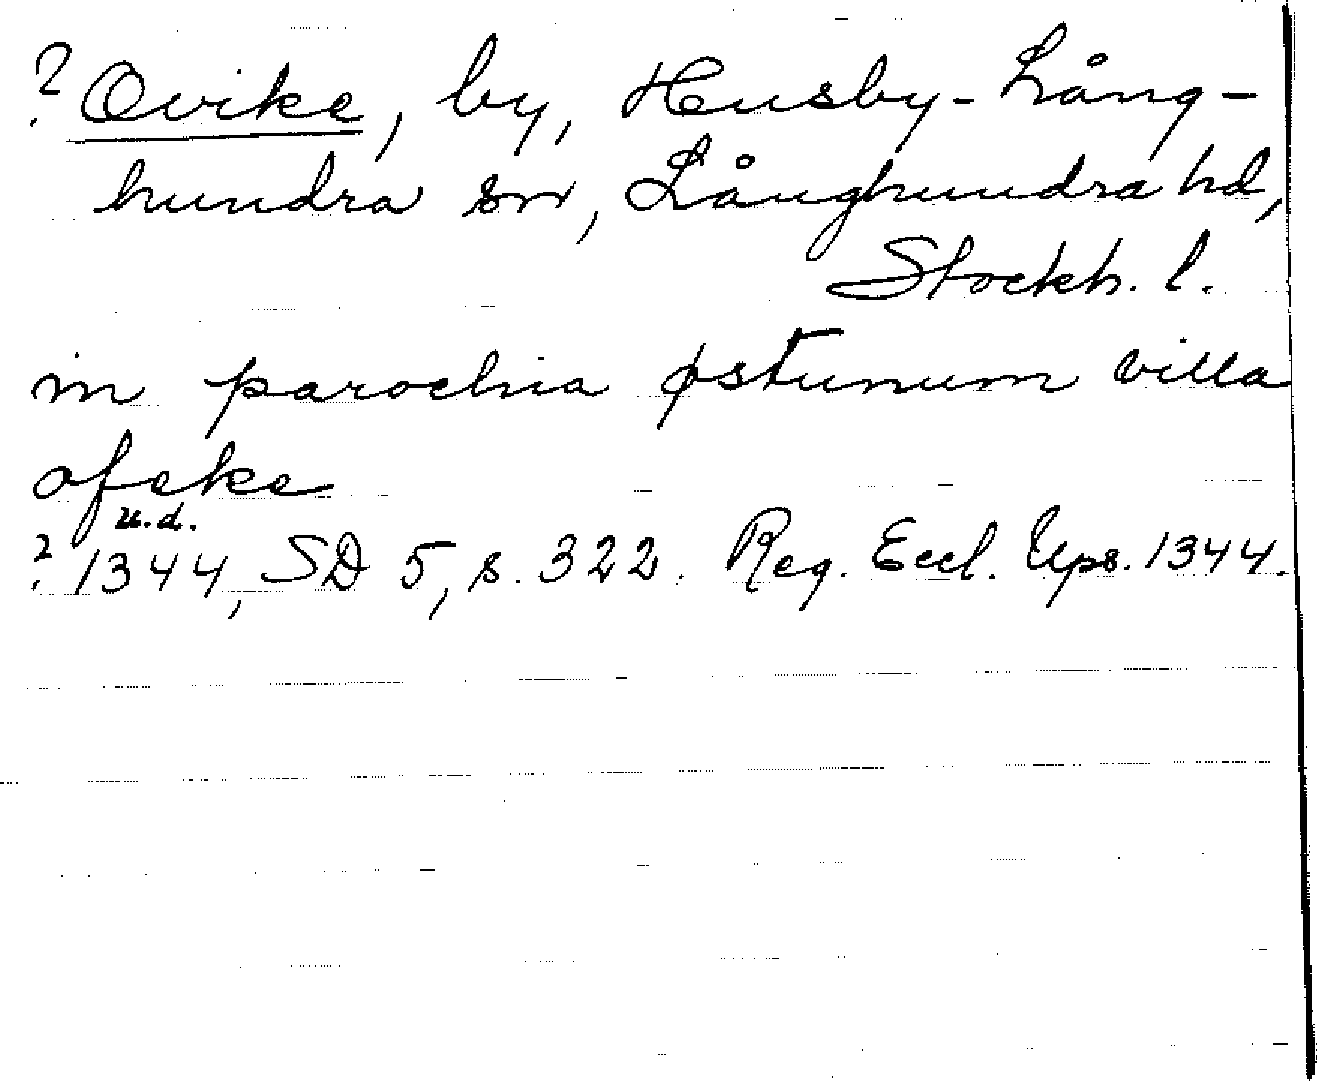 ? Ovike, by, Husby-Lång-
hundra sn, Långhundra hd,
Stockh. l.
in parochia østunum villa
ofeke
u.d.
? 1344, SD 5, s. 322. Reg. Eccl. Ups. 1344.